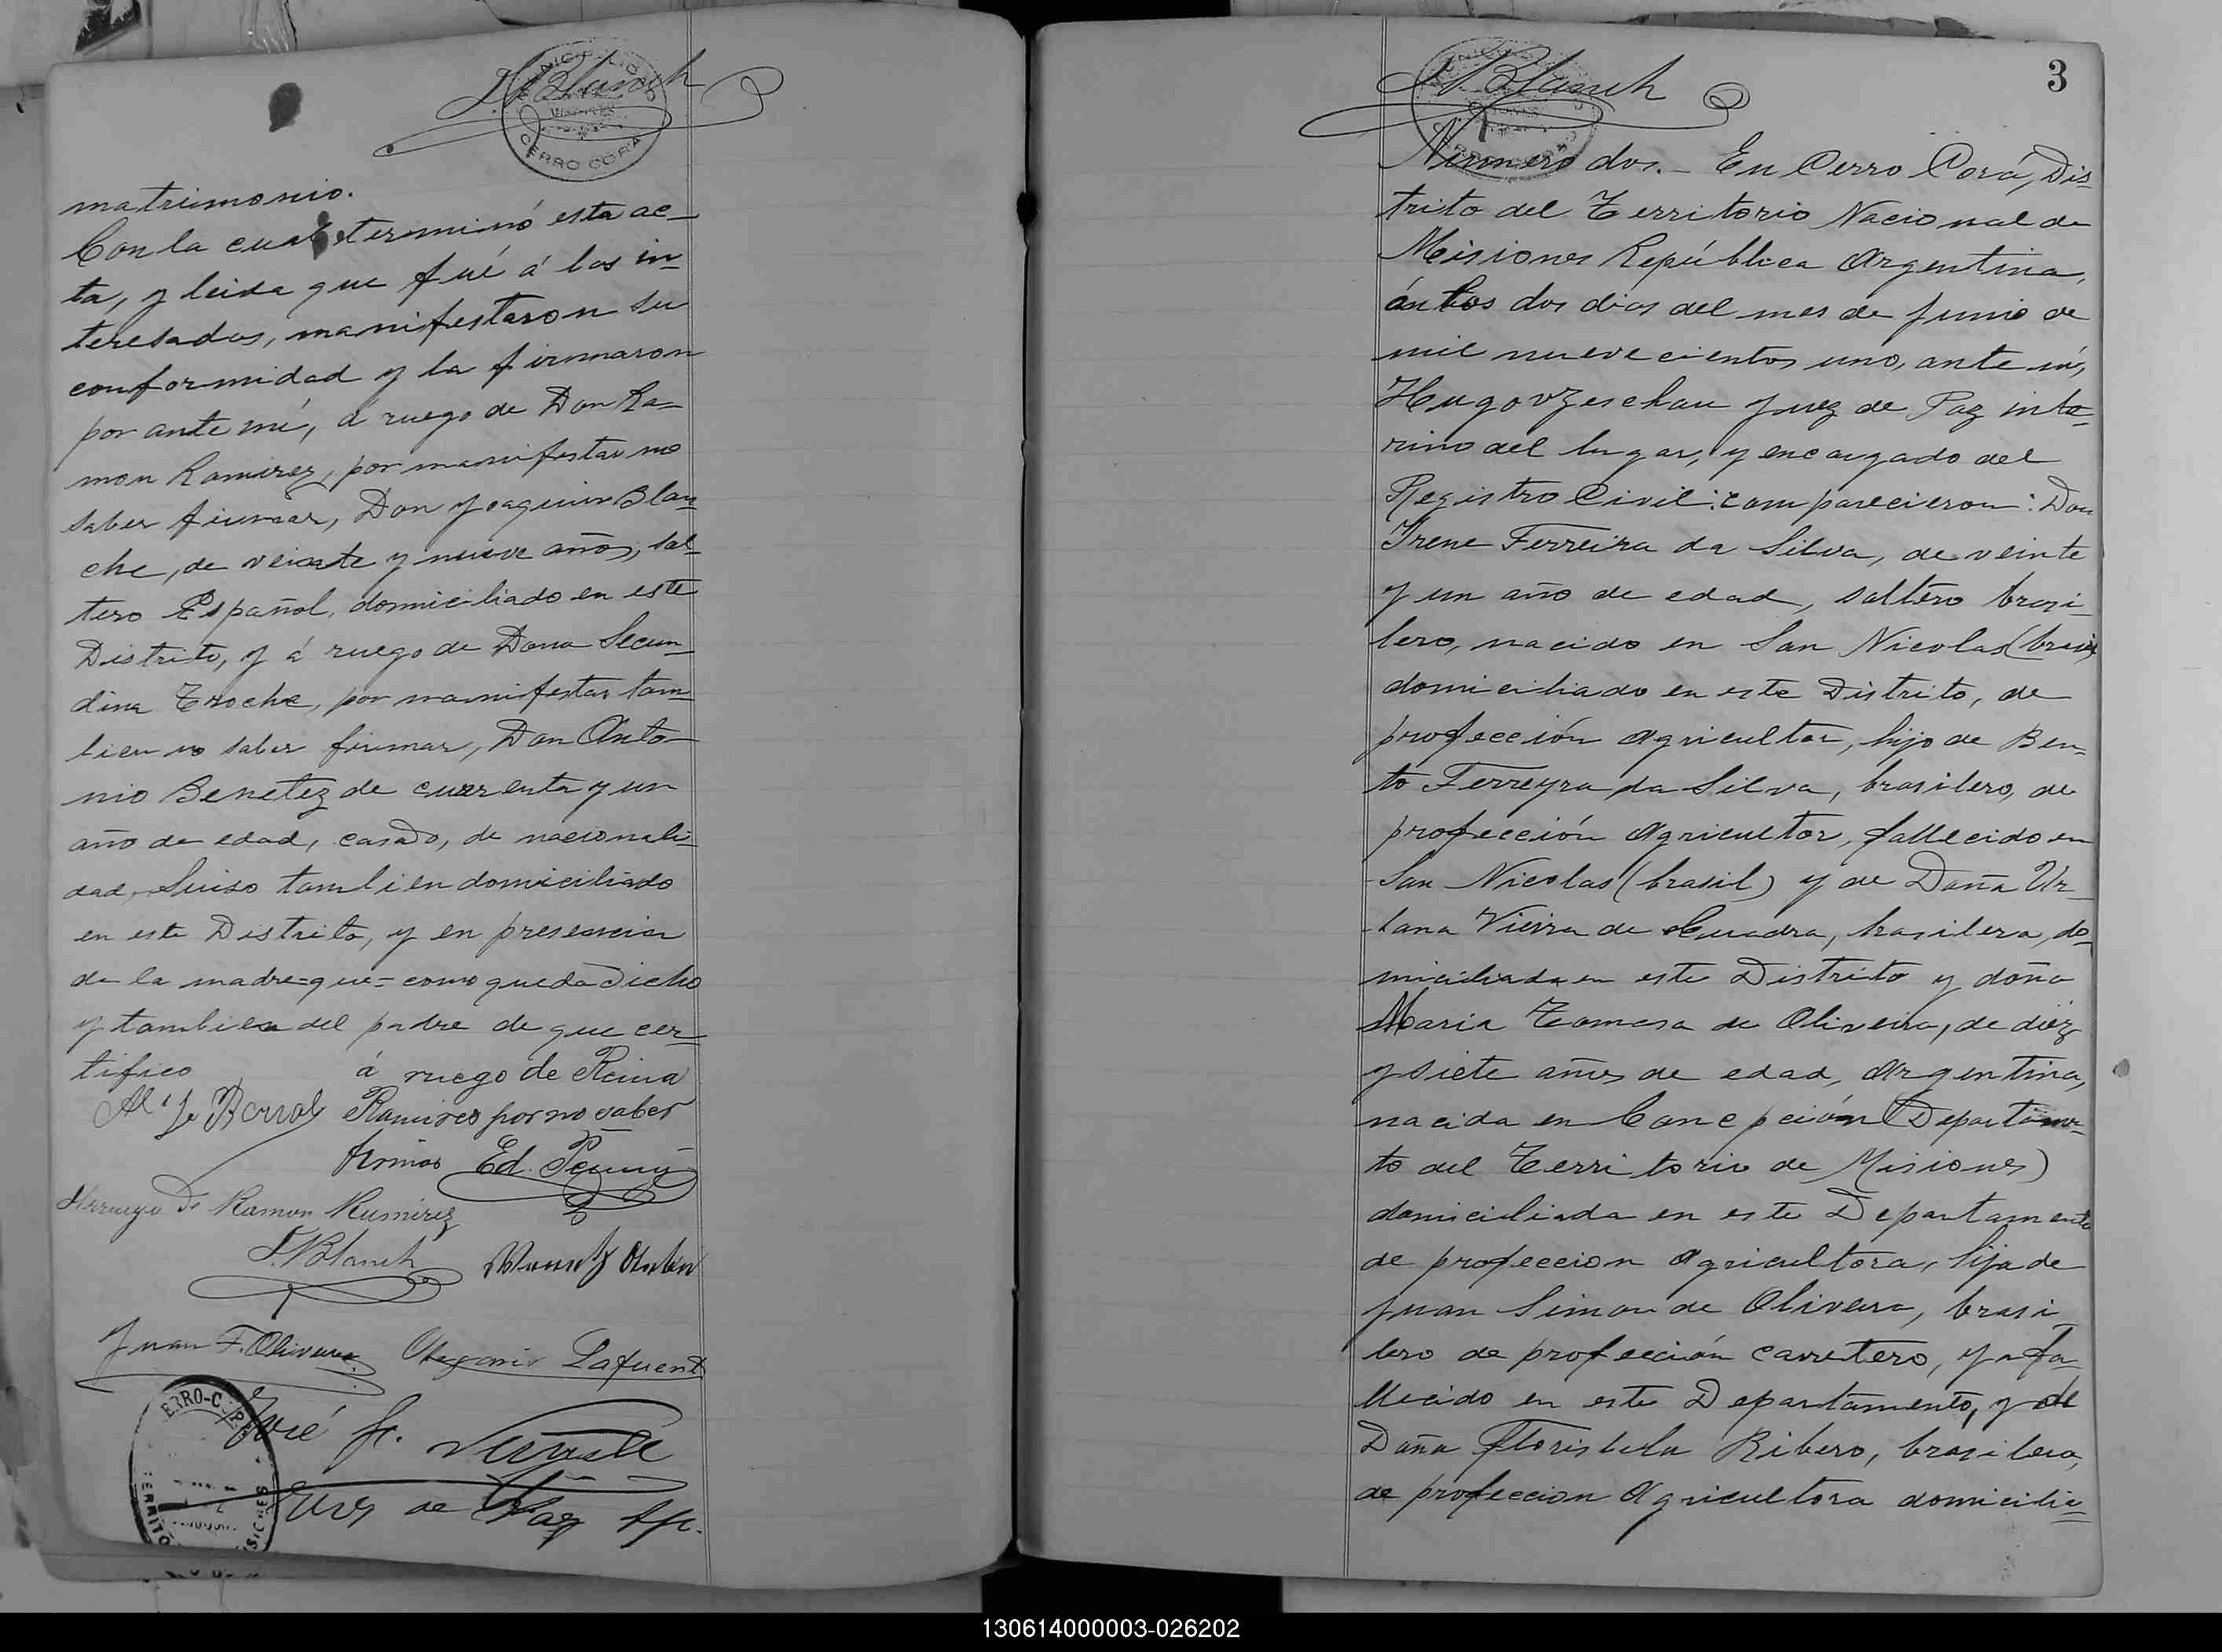 J. Blanch
CERRO CORÁ
matrimonio.
Con la cual terminó esta ac-
ta, y leida que fué á los in-
teresados, manifestaron su
conformidad y la firmaron
por ante mí, á ruego de Don Ra-
mon Ramirez, por manifestar no
saber firmar, Don Joaquin Blan-
che, de veinte y nueve años, sol-
tero Español, domiciliado en este
Distrito, y á ruego de Dona Secun-
dina Troche, por manifestar tam-
bien no saber firmar, Don Anto-
nio Benetez de cuarenta y un
año de edad, casado, de nacionali-
dad, Suiso tambien domiciliado
en este Distrito, y en presencia
de la madre=que=como queda dicho
y tambien del padre de que cer-
tifico
á ruego de Reina
Ramires por no saber
firmar Ed. Penny
Aerruego de Ramon Rumirez
J. Blanch
Juan F. Olivera Lafuente
José
Juez de Paz
3
J. Blanch
Número dos.- En Cerro Corá, Dis-
trito del Territorio Nacional de
Misiones República Argentina,
á los dos dias del mes de Junio de
mil nuevecientos uno, ante mí,
Hugo Juez de Paz inte-
rino del lugar, y encargado del
Registro Civil: comparecieron: Don
Irene Ferreira da Silva, de veinte
y un año de edad, soltero brasi-
lero, nacido en San Nicolas (brasil)
domiciliado en este Distrito, de
profección agricultor, hijo de Ben-
to Ferreyra da Silva, brasilero, de
profección agricultor, fallecido en
San Nicolas (brasil) y de Doña Ur-
bana Vieira de Cuadra, brasilera, do-
miciliada en este Distrito y doña
Maria Tomasa de Oliveira, de diez
y siete años de edad, Argentina,
nacida en Concepción (Departamen-
to del Territorio de Misiones)
domiciliada en este Departamento
de profeccion agricultora, hija de
Juan Simon de Oliveira, brasi-
lero de profección carretero, ya fa-
llecido en este Departamento, y de
Doña Floristela Ribero, brasilera,
de profeccion agricultora domicilia-
130614000003-026202